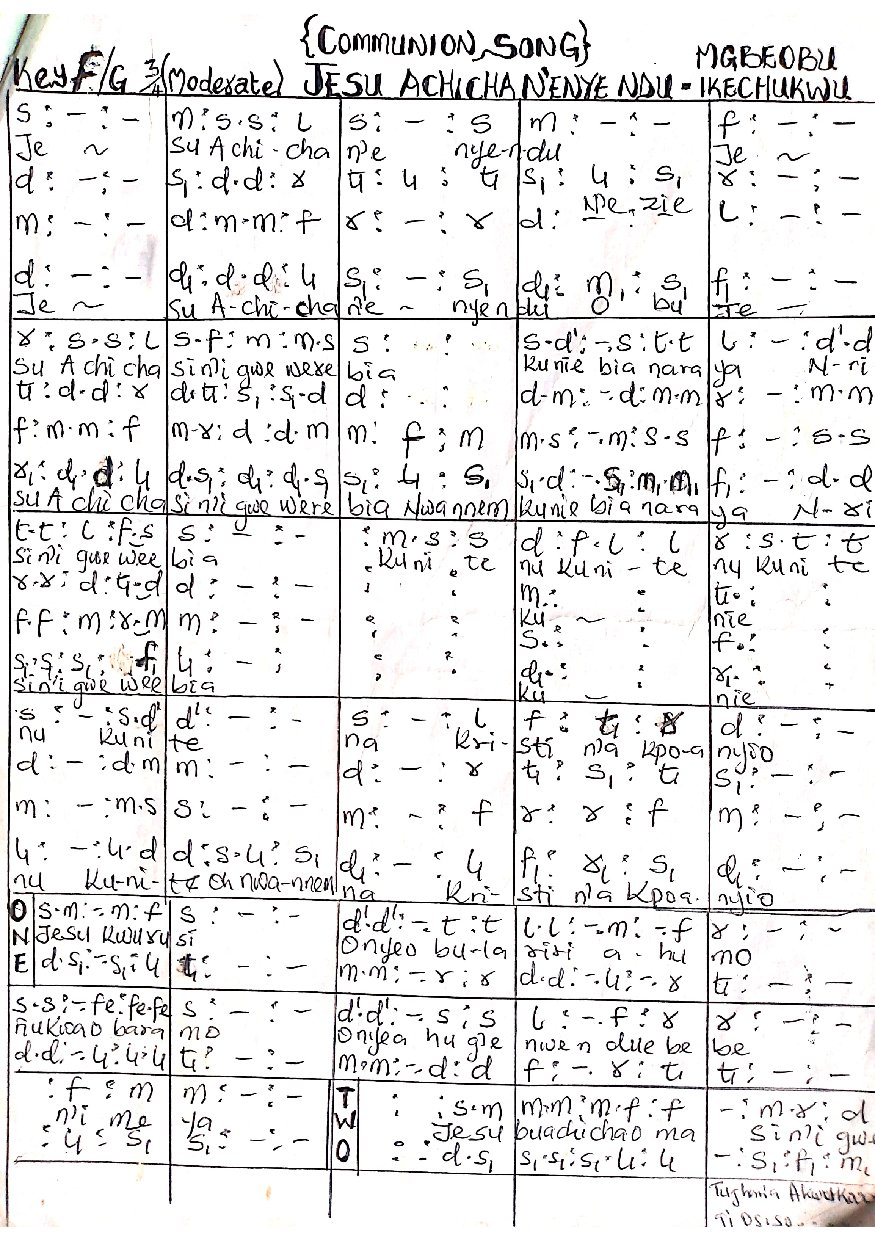 {COMMUNION SONG}
MGBEOBU
Key F/G 3/4 (Moderate) JESU ACHICHA N'ENYE NDU - IKECHUKWU
s : - : - | m : s.s : l | s : - : s | m : - : - | f : - : -
Je ~ | su A chi - cha | n'e nye-n-du | | Je ~
d : - : - | s₁ : d.d : r | t₁ : l₁ : t₁ | s₁ : l₁ : s₁ | r : - : -
m : - : - | d : m.m : f | r : - : r | d : N'e. zie | l : - : -
d : - : - | d₁ : d.d : l₁ | s₁ : - : s₁ | d₁ : m₁ : s₁ | f₁ : - : -
Je ~ | su A-chi-cha | n'e ~ nyen | du O bu | Je -
r : s.s : l | s.f : m : m.s | s : : | s.d' : -.s : t.t | l : - : d'.d
su A chi cha | si n'i gwe were | bia | kunie bia nara | ya N-ri
t₁ : d.d : r | d.t₁ : s₁ : s₁.d | d : : | d.m : -.d : m.m | r : - : m.m
f : m.m : f | m.r : d : d.m | m : f : m | m.s : -.m : s.s | f : - : s.s
r₁ : d₁.d : l₁ | d.s₁ : d₁ : d₁.s₁ | s₁ : l₁ : s₁ | s₁.d : -.s₁ : m₁.m₁ | f₁ : - : d.d
su A chi cha | si n'i gwe were | bia Nwannem | kunie bia nara | ya N-ri
t.t : l : f.s | s : - : - | : m.s : s | d : f.l : l | r : s.t : t
si n'i gwe wee | bia | Kuni te | nu kuni - te | nu kuni te
r.r : d : t₁.d | d : - : - | : : | m. : : | t₁. : :
ku ~ | nie
f.f : m : r.m | m : - : - | : : | s. : : | f. : :
s₁.s₁ : s₁ : f₁ | l₁ : - : | : : | d₁. : : | r₁. : :
si n'i gwe wee | bia | | ku - | nie
s : - : s.d' | d' : - : - | s : - : l | f : t₁ : r | d : - : -
nu kuni | te | na Kri- | sti n'a kpo-a | nyio
d : - : d.m | m : - : - | d : - : r | t₁ : s₁ : t₁ | s₁ : - : -
m : - : m.s | s : - : - | m : - : f | r : r : f | m : - : -
l₁ : - : l₁.d | d : s.l₁ : s₁ | d₁ : - : l₁ | f₁ : r₁ : s₁ | d₁ : - : -
nu ku-ni- | te oh nwa-nnem | na Kri- | sti n'a kpoa. | nyio
ONE
s.m : -.m : f | s : - : - | d'.d' : -.t : t | l.l : -.m : -.f | r : - : -
Jesu kwuru | si | Onyeo bu-la | riri a - hu | mo
d.s₁ : -.s₁ : l₁ | t₁ : - : - | m.m : -.r : r | d.d : -.l₁ : -.r | t₁ : - : -
s.s : -.fe : fe.fe | s : - : - | d'.d' : -.s : s | l : -.f : r | r : - : -
mo | Onyea hu g'e | nwe n due be | be
d.d : -.l₁ : l₁.l₁ | t₁ : - : - | m.m : -.d : d | f : -.r : t₁ | t₁ : - : -
: f : m | m : - : -
n'i me | ya
: l₁ : s₁ | s₁ : - : -
TWO
: : s.m | m.m : m.f : f | - : m.r : d
Jesu | buachichao ma | si n'i gwe
: : d.s₁ | s₁.s₁ : s₁.l₁ : l₁ | - : s₁ : f₁ : m₁